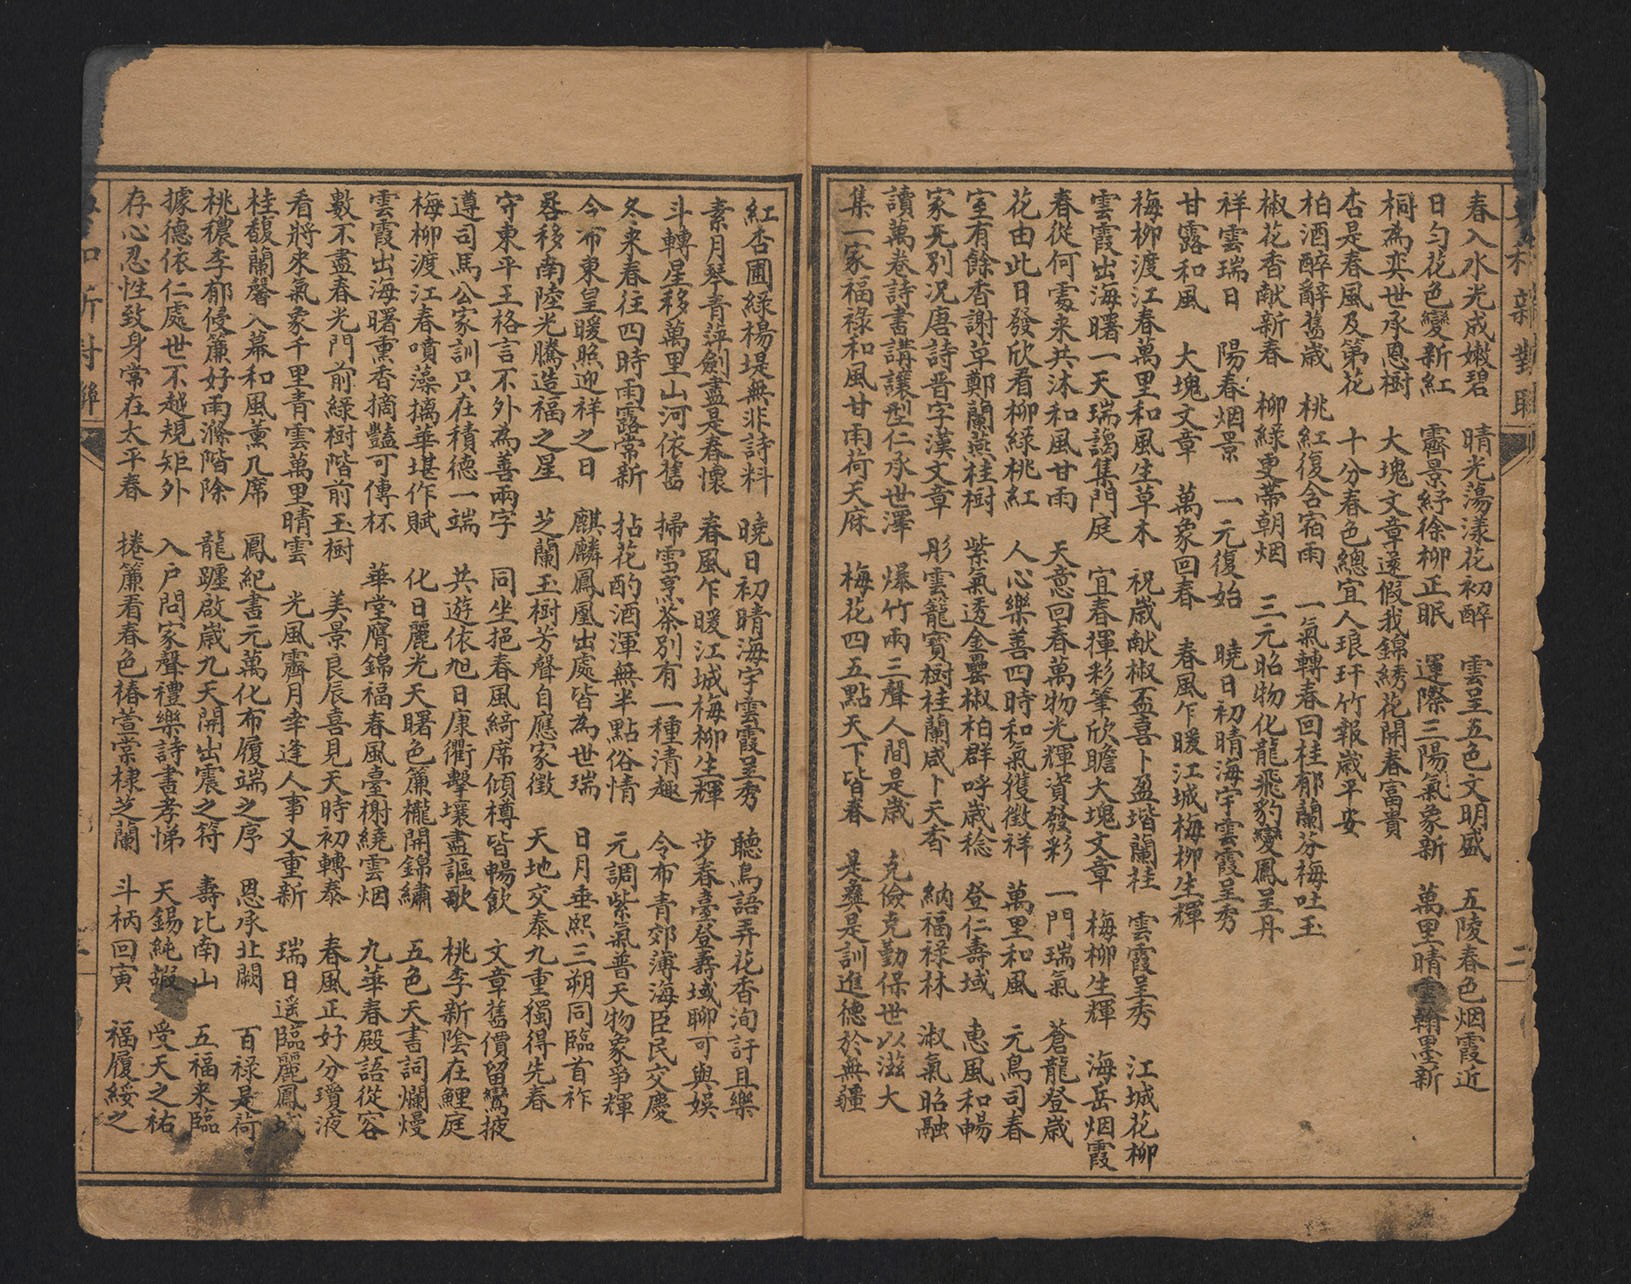 春入水光成嫩碧　晴光蕩漾花初醉　雲呈五色文明盛　五陵春色烟霞近
日勻花色變新紅　霽景紓徐柳正眠　運際三陽氣象新　萬里晴雲翰墨新
桐為奕世承恩樹　大塊文章遠假我錦綉花開春富貴
杏是春風及第花　十分春色總宜人琅玕竹報歲平安
柏酒醉辭舊歲　桃紅復含宿雨　一氣轉春回桂郁蘭芬梅吐玉
椒花香献新春　柳綠更帶朝烟　三元昭物化龍飛豹變鳳呈丹
祥雲瑞日　陽春烟景　一元復始　曉日初晴海宇雲霞呈秀
甘露和風　大塊文章　萬象回春　春風乍暖江城梅柳生輝
梅柳渡江春萬里和風生草木　祝歲献椒盃喜卜盈堦蘭桂　雲霞呈秀　江城花柳
雲霞出海曙一天瑞靄集門庭　宜春揮彩筆欣瞻大塊文章　梅柳生輝　海岳烟霞
春從何處来共沐和風甘雨　天意回春萬物光輝資發彩　一門瑞氣　蒼龍登歲
花由此日發欣看柳綠桃紅　人心樂善四時和氣獲徵祥　萬里和風　元鳥司春
室有餘香謝草鄭蘭燕桂樹　紫氣透金罍椒柏群呼歲稔　登仁壽域　惠風和暢
家无別況唐詩晋字漢文章　彤雲籠寶樹桂蘭咸卜天香　納福祿林　淑氣昭融
讀萬卷詩書講讓型仁承世澤　爆竹兩三聲人間是歲　克儉克勤保世以滋大
集一家福祿和風甘雨荷天庥　梅花四五點天下皆春　是彝是訓進德於無疆
紅杏圃綠楊堤無非詩料　曉日初晴海宇雲霞呈秀　聽鳥語弄花香洵訏且樂
素月琴青萍劍盡是春懷　春風乍暖江城梅柳生輝　步春臺登壽域聊可與娛
斗轉星移萬里山河依舊　掃雪烹茶別有一種清趣　令布青郊薄海臣民交慶
冬来春往四時雨露常新　拈花酌酒渾無半點俗情　元調紫氣普天物象爭輝
今布東皇暖照迎祥之日　麒麟鳳凰出處皆為世瑞　日月垂熙三朔同臨首祚
晷移南陸光騰造福之星　芝蘭玉樹芳聲自應家徵　天地交泰九重獨得先春
守東平王格言不外為善兩字　同坐挹春風綺席傾樽皆暢飲　文章舊價留鸞掖
遵司馬公家訓只在積德一端　共遊依旭日康衢擊壤盡謳歌　桃李新陰在鯉庭
梅柳渡江春噴藻摛華堪作賦　化日麗光天曙色簾櫳開錦繡　五色天書詞爛熳
雲霞出海曙熏香摘豔可傳杯　華堂膺錦福春風臺榭繞雲烟　九華春殿語從容
數不盡春光門前綠樹階前玉樹　美景良辰喜見天時初轉泰　春風正好分瓊液
看將來氣象千里青雲萬里晴雲　光風霽月幸逢人事又重新　瑞日遙臨麗鳳城
桂馥蘭馨入幕和風薰几席　鳳紀書元萬化布履端之序　恩承北闕　百祿是荷
桃穠李郁侵簾好雨滌階除　龍躔啟歲九天開出震之符　壽比南山　五福来臨
據德依仁處世不越規矩外　入戶問家聲禮樂詩書孝悌　天錫純嘏　受天之祐
存心忍性致身常在太平春　捲簾看春色椿萱棠棣芝蘭　斗柄回寅　福履綏之